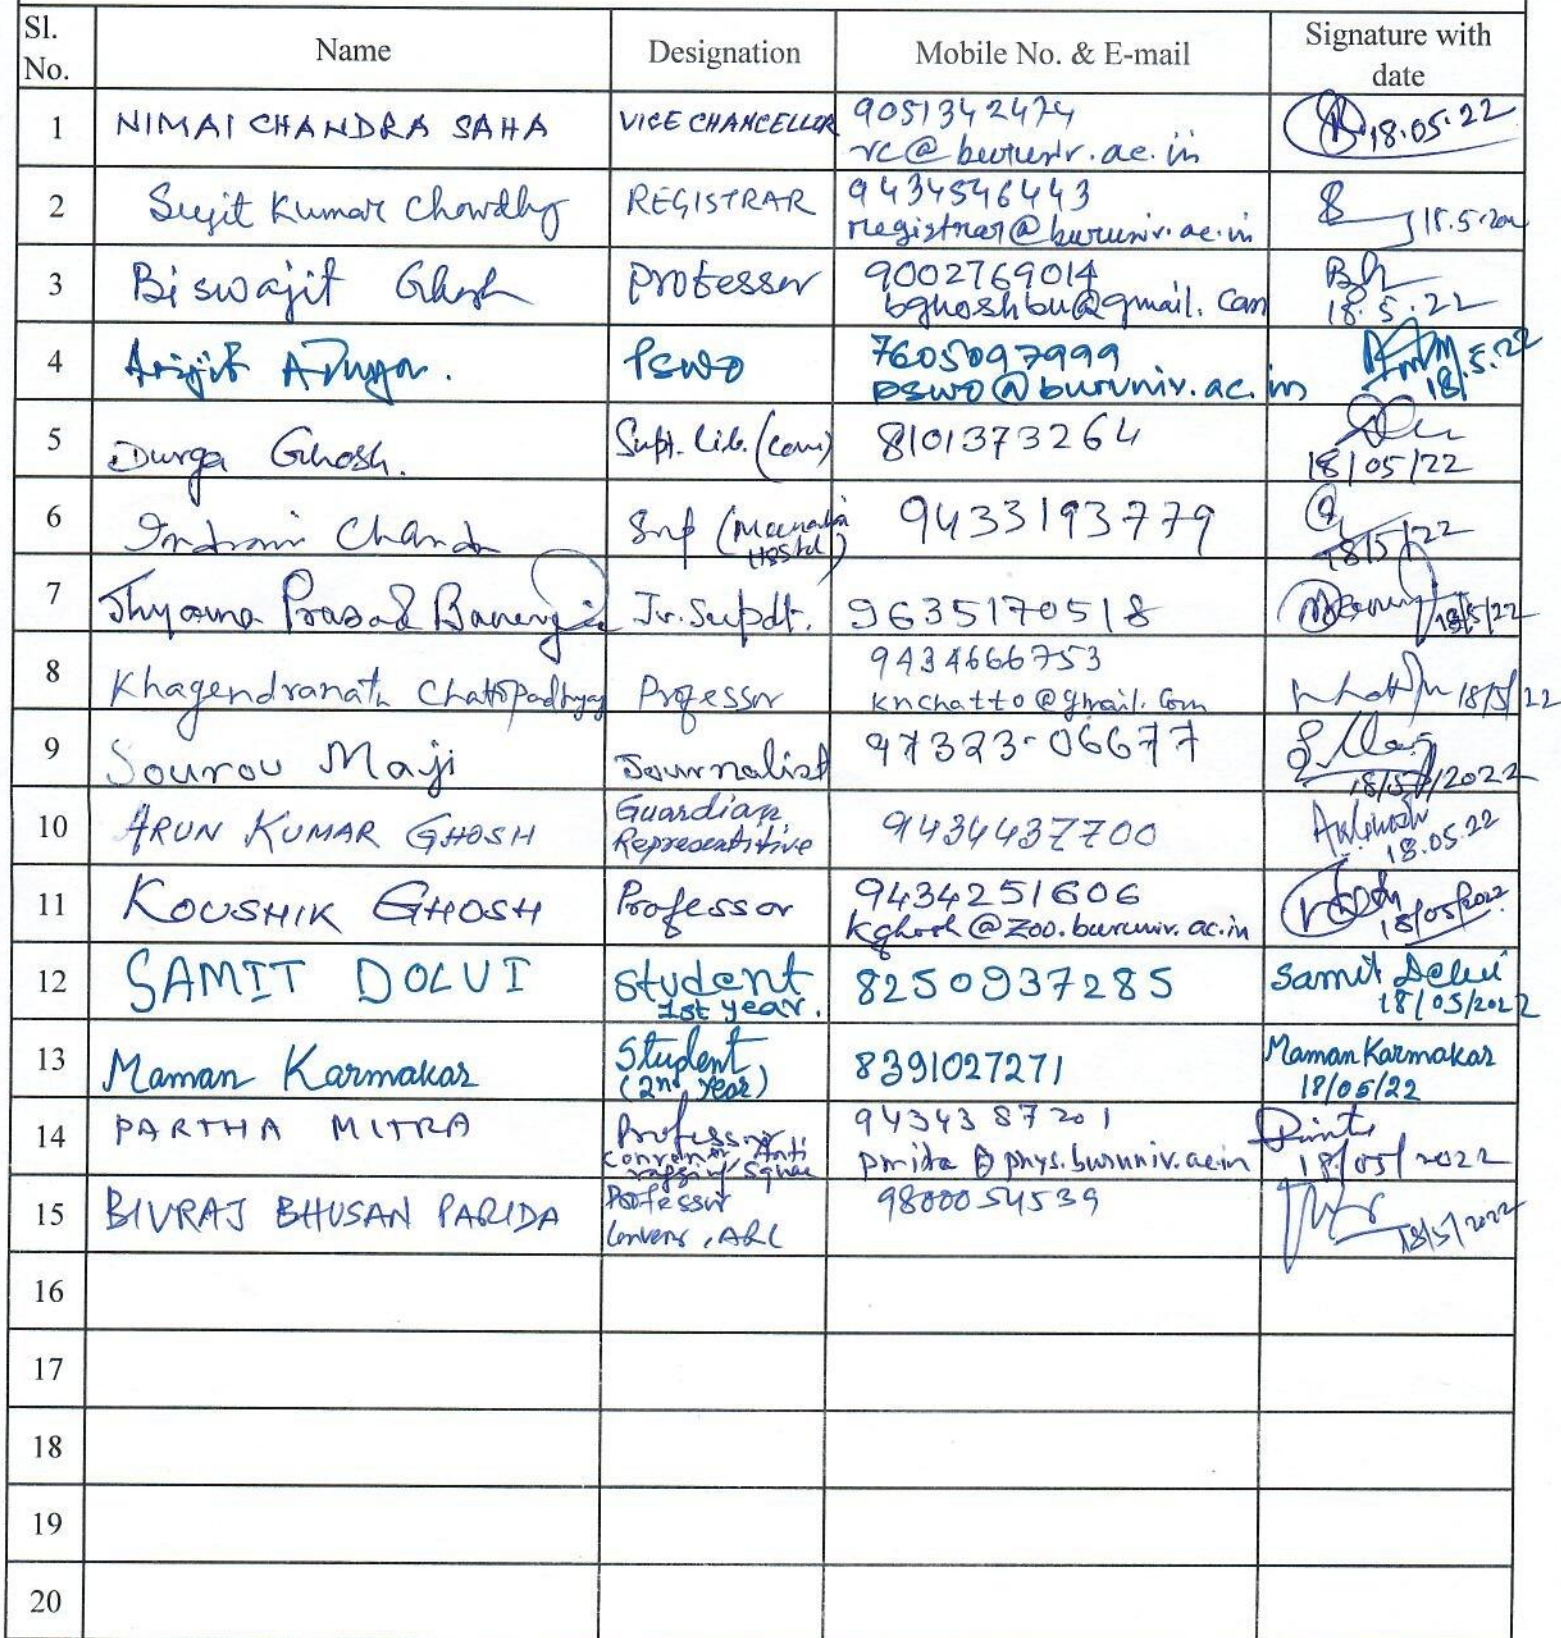 Sl. No. Name Designation Mobile No. & E-mail Signature with date
1 NIMAI CHANDRA SAHA VICE CHANCELLOR 9051342474
vc@buruniv.ac.in 18.05.22
2 Sujit Kumar Chowdhy REGISTRAR 9434546443
registrar@buruniv.ac.in
3 Biswajit Ghosh Professor 9002769014
bghoshbu@gmail.com 18.5.22
4 Arijit PSWO 7605097999
pswo@buruniv.ac.in 18.5.22
5 Durga Ghosh. Supt. Lib. 8101373264
18/05/22
6 Chanda 9433193779
18/5/22
7 Shyama Prasad Banerjee Jr. Supdt. 9635170518
18/5/22
8 Khagendranath Chattopadhyay Professor 9434666753
knchatto@gmail.com 18/5/22
9 Sourov Maji Journalist 97323-06677
18/5/2022
10 ARUN KUMAR GHOSH Guardian
Representitive 9434437700
18.05.22
11 KOUSHIK GHOSH Professor 9434251606
kghosh@zoo.buruniv.ac.in 18/05/2022
12 SAMIT DOLUI Student
1st year. 8250937285 Samit Dolui
18/05/2022
13 Maman Karmakar Student
(2nd year) 8391027271 Maman Karmakar
18/05/22
14 PARTHA MITRA Professor
Convenor, Anti
9434387201
@phys.buruniv.ac.in 18/05/2022
15 BIVRAJ BHUSAN PARIDA Professor
9800054539 18/5/2022
16
17
18
19
20